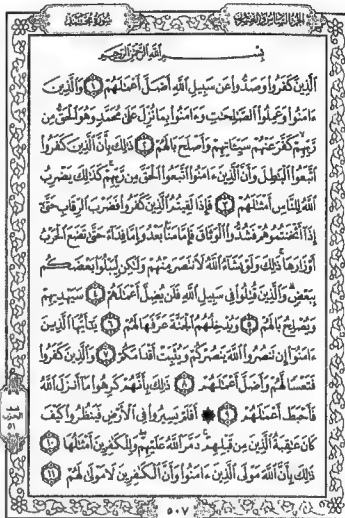 الجزء السادس والعشرون سورة محمد
بسم الله الرحمن الرحيم
الَّذِينَ كَفَرُوا وَصَدُّوا عَن سَبِيلِ اللَّهِ أَضَلَّ أَعْمَالَهُمْ ١ وَالَّذِينَ
ءَامَنُوا وَعَمِلُوا الصَّالِحَاتِ وَءَامَنُوا بِمَا نُزِّلَ عَلَى مُحَمَّدٍ وَهُوَ الْحَقُّ مِن
رَّبِّهِمْ كَفَّرَ عَنْهُمْ سَيِّئَاتِهِمْ وَأَصْلَحَ بَالَهُمْ ٢ ذَلِكَ بِأَنَّ الَّذِينَ كَفَرُوا
اتَّبَعُوا الْبَاطِلَ وَأَنَّ الَّذِينَ ءَامَنُوا اتَّبَعُوا الْحَقَّ مِن رَّبِّهِمْ كَذَلِكَ يَضْرِبُ
اللَّهُ لِلنَّاسِ أَمْثَالَهُمْ ٣ فَإِذَا لَقِيتُمُ الَّذِينَ كَفَرُوا فَضَرْبَ الرِّقَابِ حَتَّى
إِذَا أَثْخَنتُمُوهُمْ فَشُدُّوا الْوَثَاقَ فَإِمَّا مَنًّا بَعْدُ وَإِمَّا فِدَاءً حَتَّى تَضَعَ الْحَرْبُ
أَوْزَارَهَا ذَلِكَ وَلَوْ يَشَاءُ اللَّهُ لَانتَصَرَ مِنْهُمْ وَلَكِن لِّيَبْلُوَا بَعْضَكُم
بِبَعْضٍ وَالَّذِينَ قُتِلُوا فِي سَبِيلِ اللَّهِ فَلَن يُضِلَّ أَعْمَالَهُمْ ٤ سَيَهْدِيهِمْ
وَيُصْلِحُ بَالَهُمْ ٥ وَيُدْخِلُهُمُ الْجَنَّةَ عَرَّفَهَا لَهُمْ ٦ يَاأَيُّهَا الَّذِينَ
ءَامَنُوا إِن تَنصُرُوا اللَّهَ يَنصُرْكُمْ وَيُثَبِّتْ أَقْدَامَكُمْ ٧ وَالَّذِينَ كَفَرُوا
فَتَعْسًا لَّهُمْ وَأَضَلَّ أَعْمَالَهُمْ ٨ ذَلِكَ بِأَنَّهُمْ كَرِهُوا مَا أَنزَلَ اللَّهُ
فَأَحْبَطَ أَعْمَالَهُمْ ٩ ۞ أَفَلَمْ يَسِيرُوا فِي الْأَرْضِ فَيَنظُرُوا كَيْفَ
كَانَ عَاقِبَةُ الَّذِينَ مِن قَبْلِهِمْ دَمَّرَ اللَّهُ عَلَيْهِمْ وَلِلْكَافِرِينَ أَمْثَالُهَا ١٠
ذَلِكَ بِأَنَّ اللَّهَ مَوْلَى الَّذِينَ ءَامَنُوا وَأَنَّ الْكَافِرِينَ لَا مَوْلَى لَهُمْ ١١
الحزب
٥١
٥٠٧